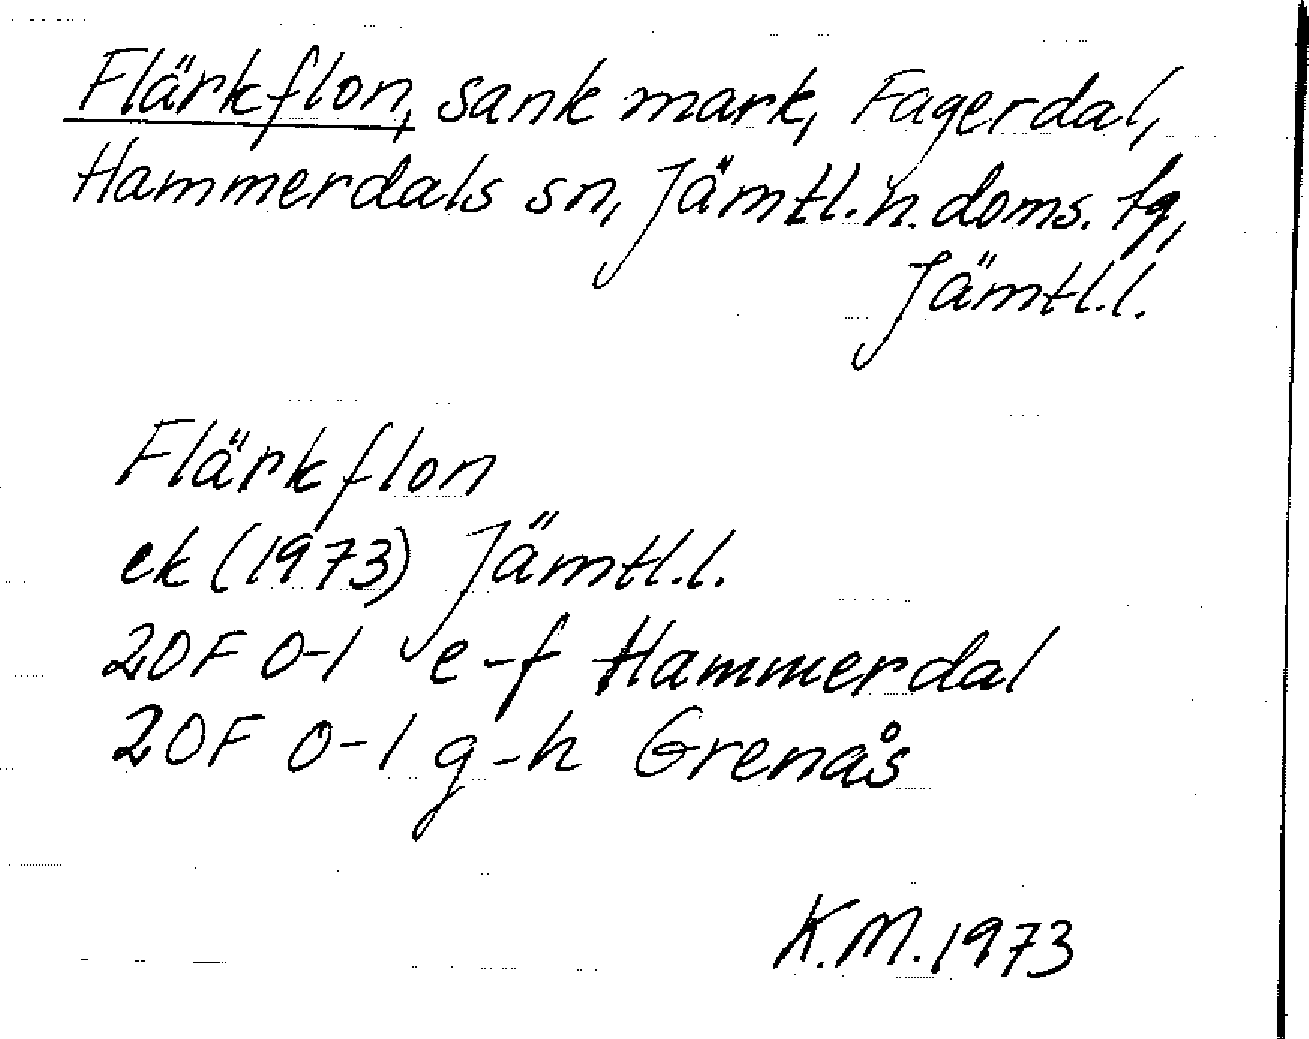 Flärkflon, sank mark, Fagerdal,
Hammerdals sn, Jämtl. n. doms. tg,
Jämtl.l.
Flärkflon
ek (1973) Jämtl.l.
20F 0-1 e-f Hammerdal
20F 0-1 g-h Grenås
K.M. 1973